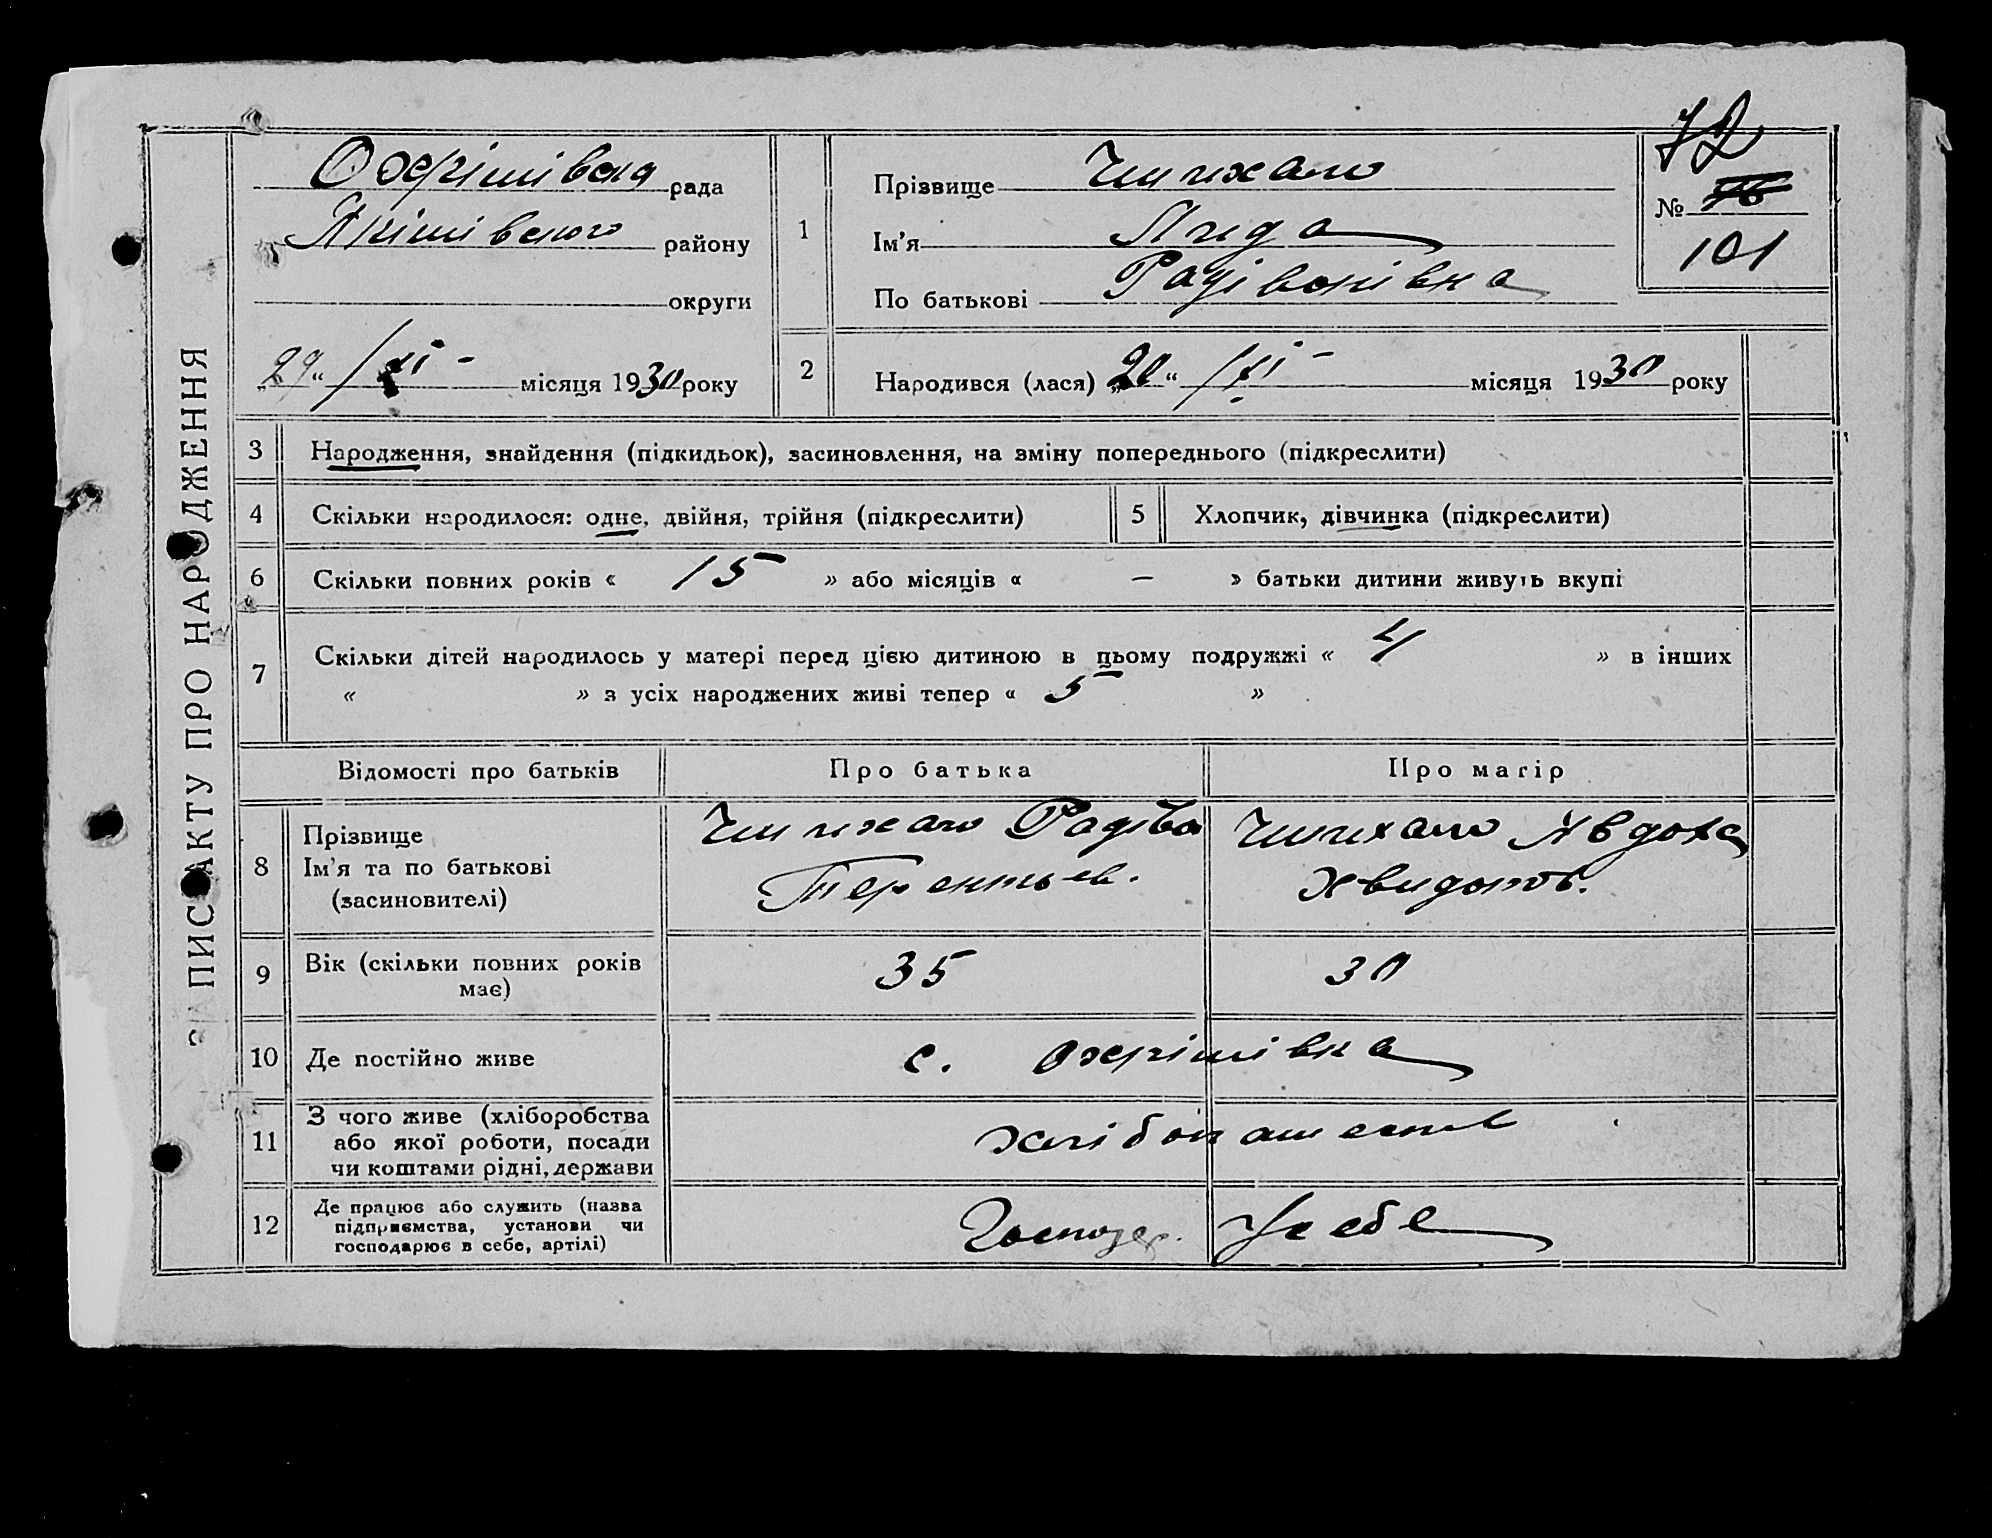 ЗАПИС АКТУ ПРО НАРОДЖЕННЯ
Охрімівська рада
Якімівського району
округи
„29“ /XI - місяця 1930 року
1
Прізвище Чмихало
Ім’я Лида
По батькові Радівонівна
72
№
101
2
Народився (лася) „20“ /XI - місяця 1930 року
3 Народження, знайдення (підкидьок), засиновлення, на зміну попереднього (підкреслити)
4 Скільки народилося: одне, двійня, трійня (підкреслити) 5 Хлопчик, дівчинка (підкреслити)
6 Скільки повних років « 15 » або місяців « — » батьки дитини живуть вкупі
7 Скільки дітей народилось у матері перед цією дитиною в цьому подружжі « 4 » в інших
« » з усіх народжених живі тепер « 5 »
Відомості про батьків Про батька Про матір
8 Прізвище
Ім’я та по батькові
(засиновителі)
Чмихало Радіво
Терентьев.
Чмихало Явдоха
Хвидотов.
9 Вік (скільки повних років
має)
35 30
10 Де постійно живе с. Охрімівка
11 З чого живе (хліборобства
або якої роботи, посади
чи коштами рідні, держави
хлібопашест
12 Де працює або служить (назва
підприємства, установи чи
господарює в себе, артілі)
Господар. У себе